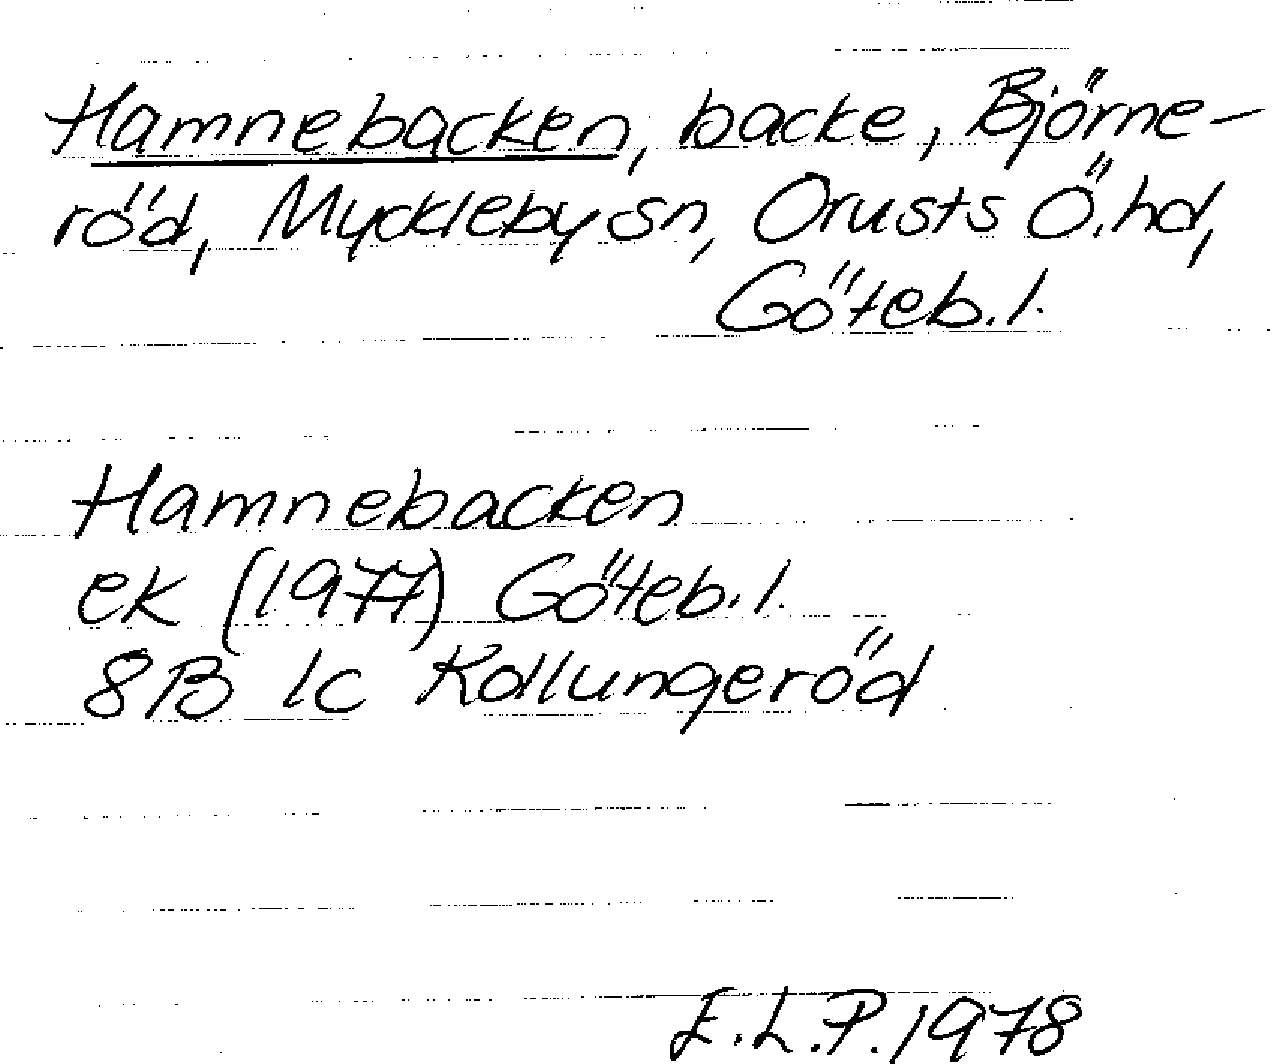 Hamnebacken, backe, Björne-
röd, Myckleby sn, Orusts Ö.hd,
Göteb.l.
Hamnebacken
ek (1977) Göteb.l.
8B 1c Kollungeröd
E.L.P.1978